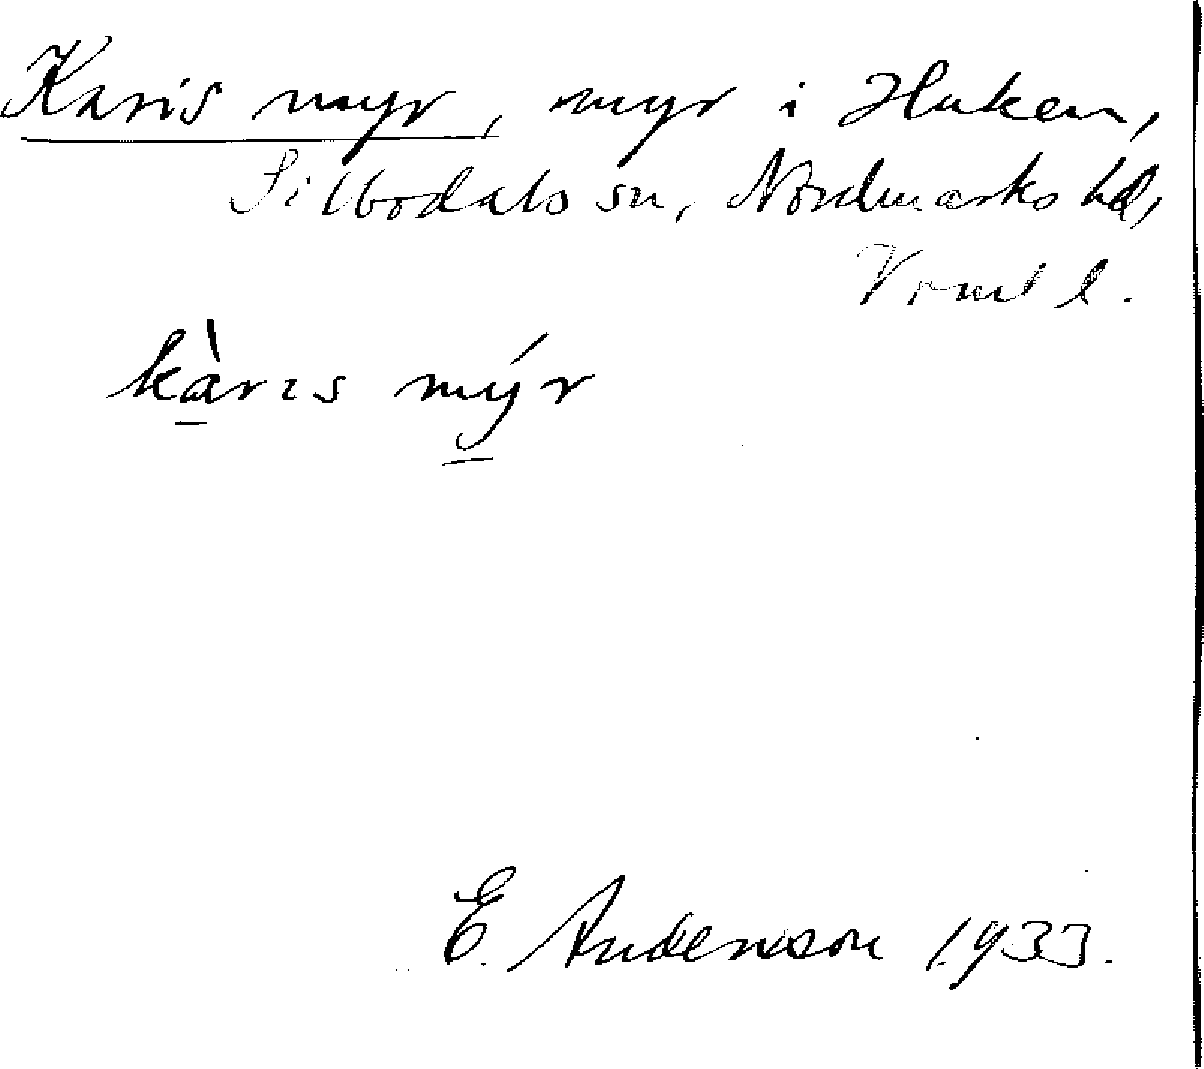 Karis myr, myr i Haken,
Silbodals sn, Nordmarks hd,
Värml.
kàrıs mýr
E. Andersson 1933.